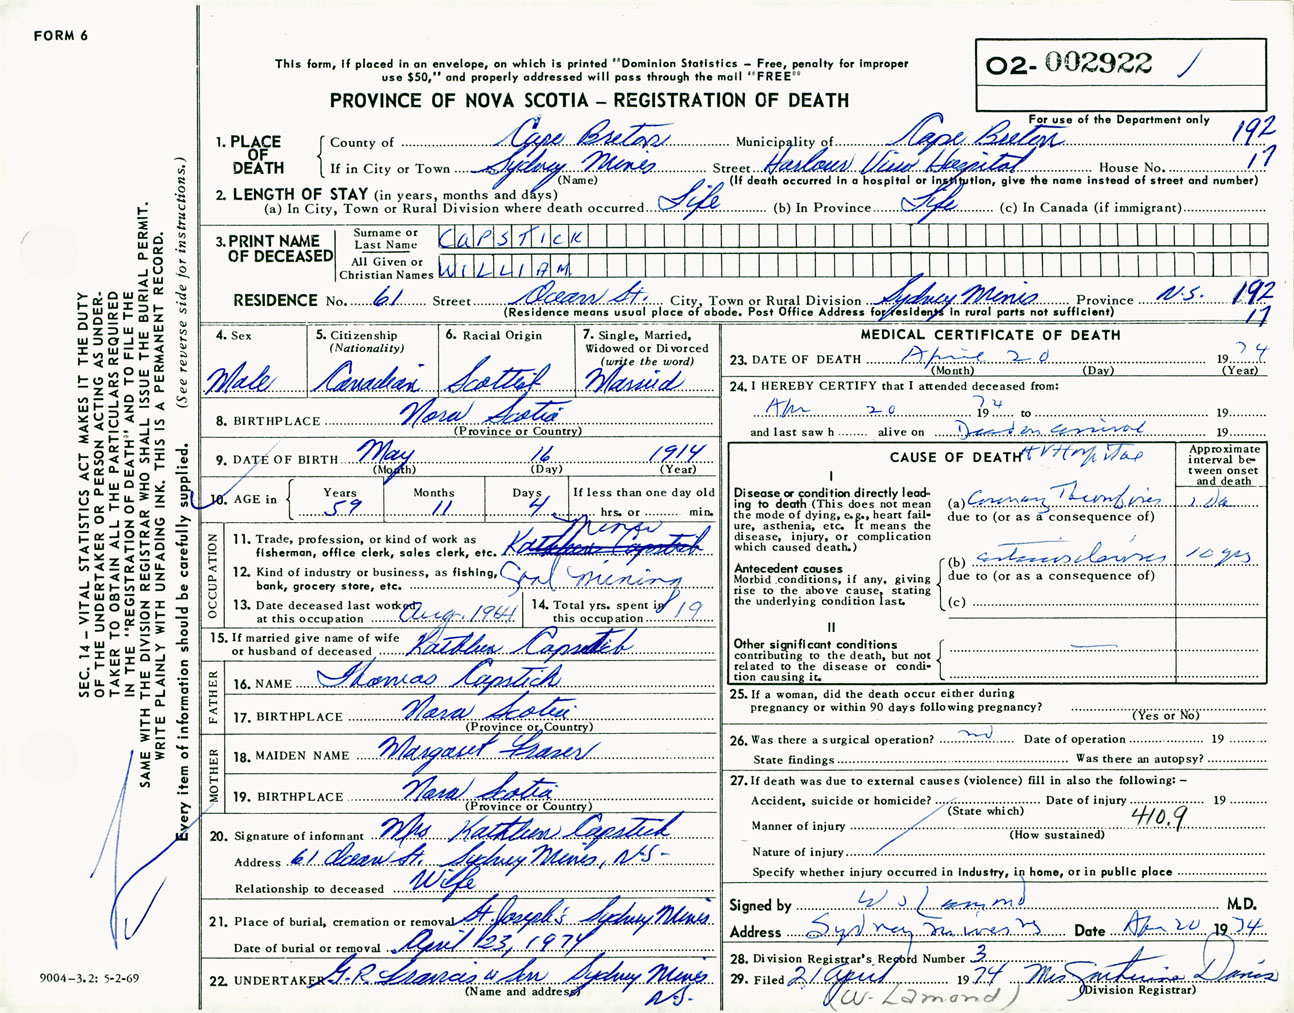 FORM 6
This form, if placed in an envelope, on which is printed "Dominion Statistics - Free, penalty for improper
use $50," and properly addressed will pass through the mail "FREE"
PROVINCE OF NOVA SCOTIA - REGISTRATION OF DEATH
02-002922
For use of the Department only
192
17
1. PLACE OF DEATH
County of Cape Breton Municipality of Cape Breton
If in City or Town Sydney Mines Street Harbour View Hospital House No.
(Name) (If death occurred in a hospital or institution, give the name instead of street and number)
2. LENGTH OF STAY (in years, months and days)
(a) In City, Town or Rural Division where death occurred Life (b) In Province Life (c) In Canada (if immigrant)
3. PRINT NAME OF DECEASED
Surname or Last Name CAPSTICK
All Given or Christian Names WILLIAM
RESIDENCE No. 61 Street Ocean St. City, Town or Rural Division Sydney Mines Province N.S. 192
17
(Residence means usual place of abode. Post Office Address for residents in rural parts not sufficient)
4. Sex
Male
5. Citizenship
(Nationality)
Canadian
6. Racial Origin
Scottish
7. Single, Married,
Widowed or Divorced
(write the word)
Married
8. BIRTHPLACE Nova Scotia
(Province or Country)
9. DATE OF BIRTH May 16 1914
(Month) (Day) (Year)
10. AGE in Years 59 Months 11 Days 4 If less than one day old
hrs. or min.
OCCUPATION
11. Trade, profession, or kind of work as
fisherman, office clerk, sales clerk, etc. Kathleen Capstick Miner
12. Kind of industry or business, as fishing,
bank, grocery store, etc. Coal Mining
13. Date deceased last worked
at this occupation Aug. 1964
14. Total yrs. spent in
this occupation 19
15. If married give name of wife
or husband of deceased Kathleen Capstick
FATHER
16. NAME Thomas Capstick
17. BIRTHPLACE Nova Scotia
(Province or Country)
MOTHER
18. MAIDEN NAME Margaret Fraser
19. BIRTHPLACE Nova Scotia
(Province or Country)
20. Signature of informant Mrs Kathleen Capstick
Address 61 Ocean St. Sydney Mines, N.S.
Relationship to deceased Wife
21. Place of burial, cremation or removal St. Joseph's Sydney Mines
Date of burial or removal April 23, 1974
22. UNDERTAKER G.R. Francis & Son Sydney Mines
(Name and address) N.S.
MEDICAL CERTIFICATE OF DEATH
23. DATE OF DEATH April 20 1974
(Month) (Day) (Year)
24. I HEREBY CERTIFY that I attended deceased from:
Apr 20 1974 to 19
and last saw h alive on Dead on arrival 19
H V Hospital
CAUSE OF DEATH
Approximate interval between onset and death
I
Disease or condition directly lead-
ing to death (This does not mean
the mode of dying, e.g., heart fail-
ure, asthenia, etc. It means the
disease, injury, or complication
which caused death.)
(a) Coronary Thrombosis 1 Da
due to (or as a consequence of)
Antecedent causes
Morbid conditions, if any, giving
rise to the above cause, stating
the underlying condition last.
(b) arteriosclerosis 10 yrs
due to (or as a consequence of)
(c)
II
Other significant conditions
contributing to the death, but not
related to the disease or condi-
tion causing it.
25. If a woman, did the death occur either during
pregnancy or within 90 days following pregnancy?
(Yes or No)
26. Was there a surgical operation? no Date of operation 19
State findings Was there an autopsy?
27. If death was due to external causes (violence) fill in also the following: -
Accident, suicide or homicide? Date of injury 19
(State which)
Manner of injury 410.9
(How sustained)
Nature of injury
Specify whether injury occurred in industry, in home, or in public place
Signed by W S Lamond M.D.
Address Sydney Mines NS Date Apr 20 1974
28. Division Registrar's Record Number 3
29. Filed 21 April 1974 Mrs Davis
(W. Lamond) (Division Registrar)
SEC. 14 - VITAL STATISTICS ACT MAKES IT THE DUTY
OF THE UNDERTAKER OR PERSON ACTING AS UNDER-
TAKER TO OBTAIN ALL THE PARTICULARS REQUIRED
IN THE "REGISTRATION OF DEATH" AND TO FILE THE
SAME WITH THE DIVISION REGISTRAR WHO SHALL ISSUE THE BURIAL PERMIT.
WRITE PLAINLY WITH UNFADING INK. THIS IS A PERMANENT RECORD.
Every item of information should be carefully supplied. (See reverse side for instructions.)
9004-3.2: 5-2-69